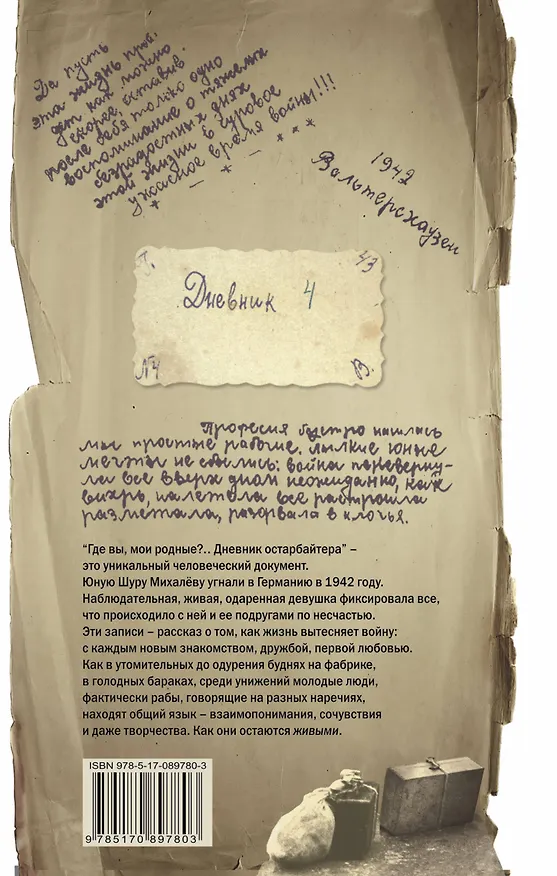 Да пусть
эта жизнь прой-
дет как можно
скорее, оставив
после себя только одно
воспоминание о тяжелых
безрадостных днях
этой жизни в суровое
ужасное время войны!!!
* — * — * * *
1942
Вальтерсхаузен
Г. 43
Дневник 4
№4 В.
Професия быстро нашлась
мы простые рабочие. Пылкие юные
мечты не сбылись: война перевер­ну-
ла все вверх дном неожиданно, как
вихрь, налетела все растрошла
разметала, разорвала в клочья.
"Где вы, мои родные?.. Дневник остарбайтера" –
это уникальный человеческий документ.
Юную Шуру Михалёву угнали в Германию в 1942 году.
Наблюдательная, живая, одаренная девушка фиксировала все,
что происходило с ней и ее подругами по несчастью.
Эти записи – рассказ о том, как жизнь вытесняет войну:
с каждым новым знакомством, дружбой, первой любовью.
Как в утомительных до одурения буднях на фабрике,
в голодных бараках, среди унижений молодые люди,
фактически рабы, говорящие на разных наречиях,
находят общий язык – взаимопонимания, сочувствия
и даже творчества. Как они остаются живыми.
ISBN 978-5-17-089780-3
9 785170 897803